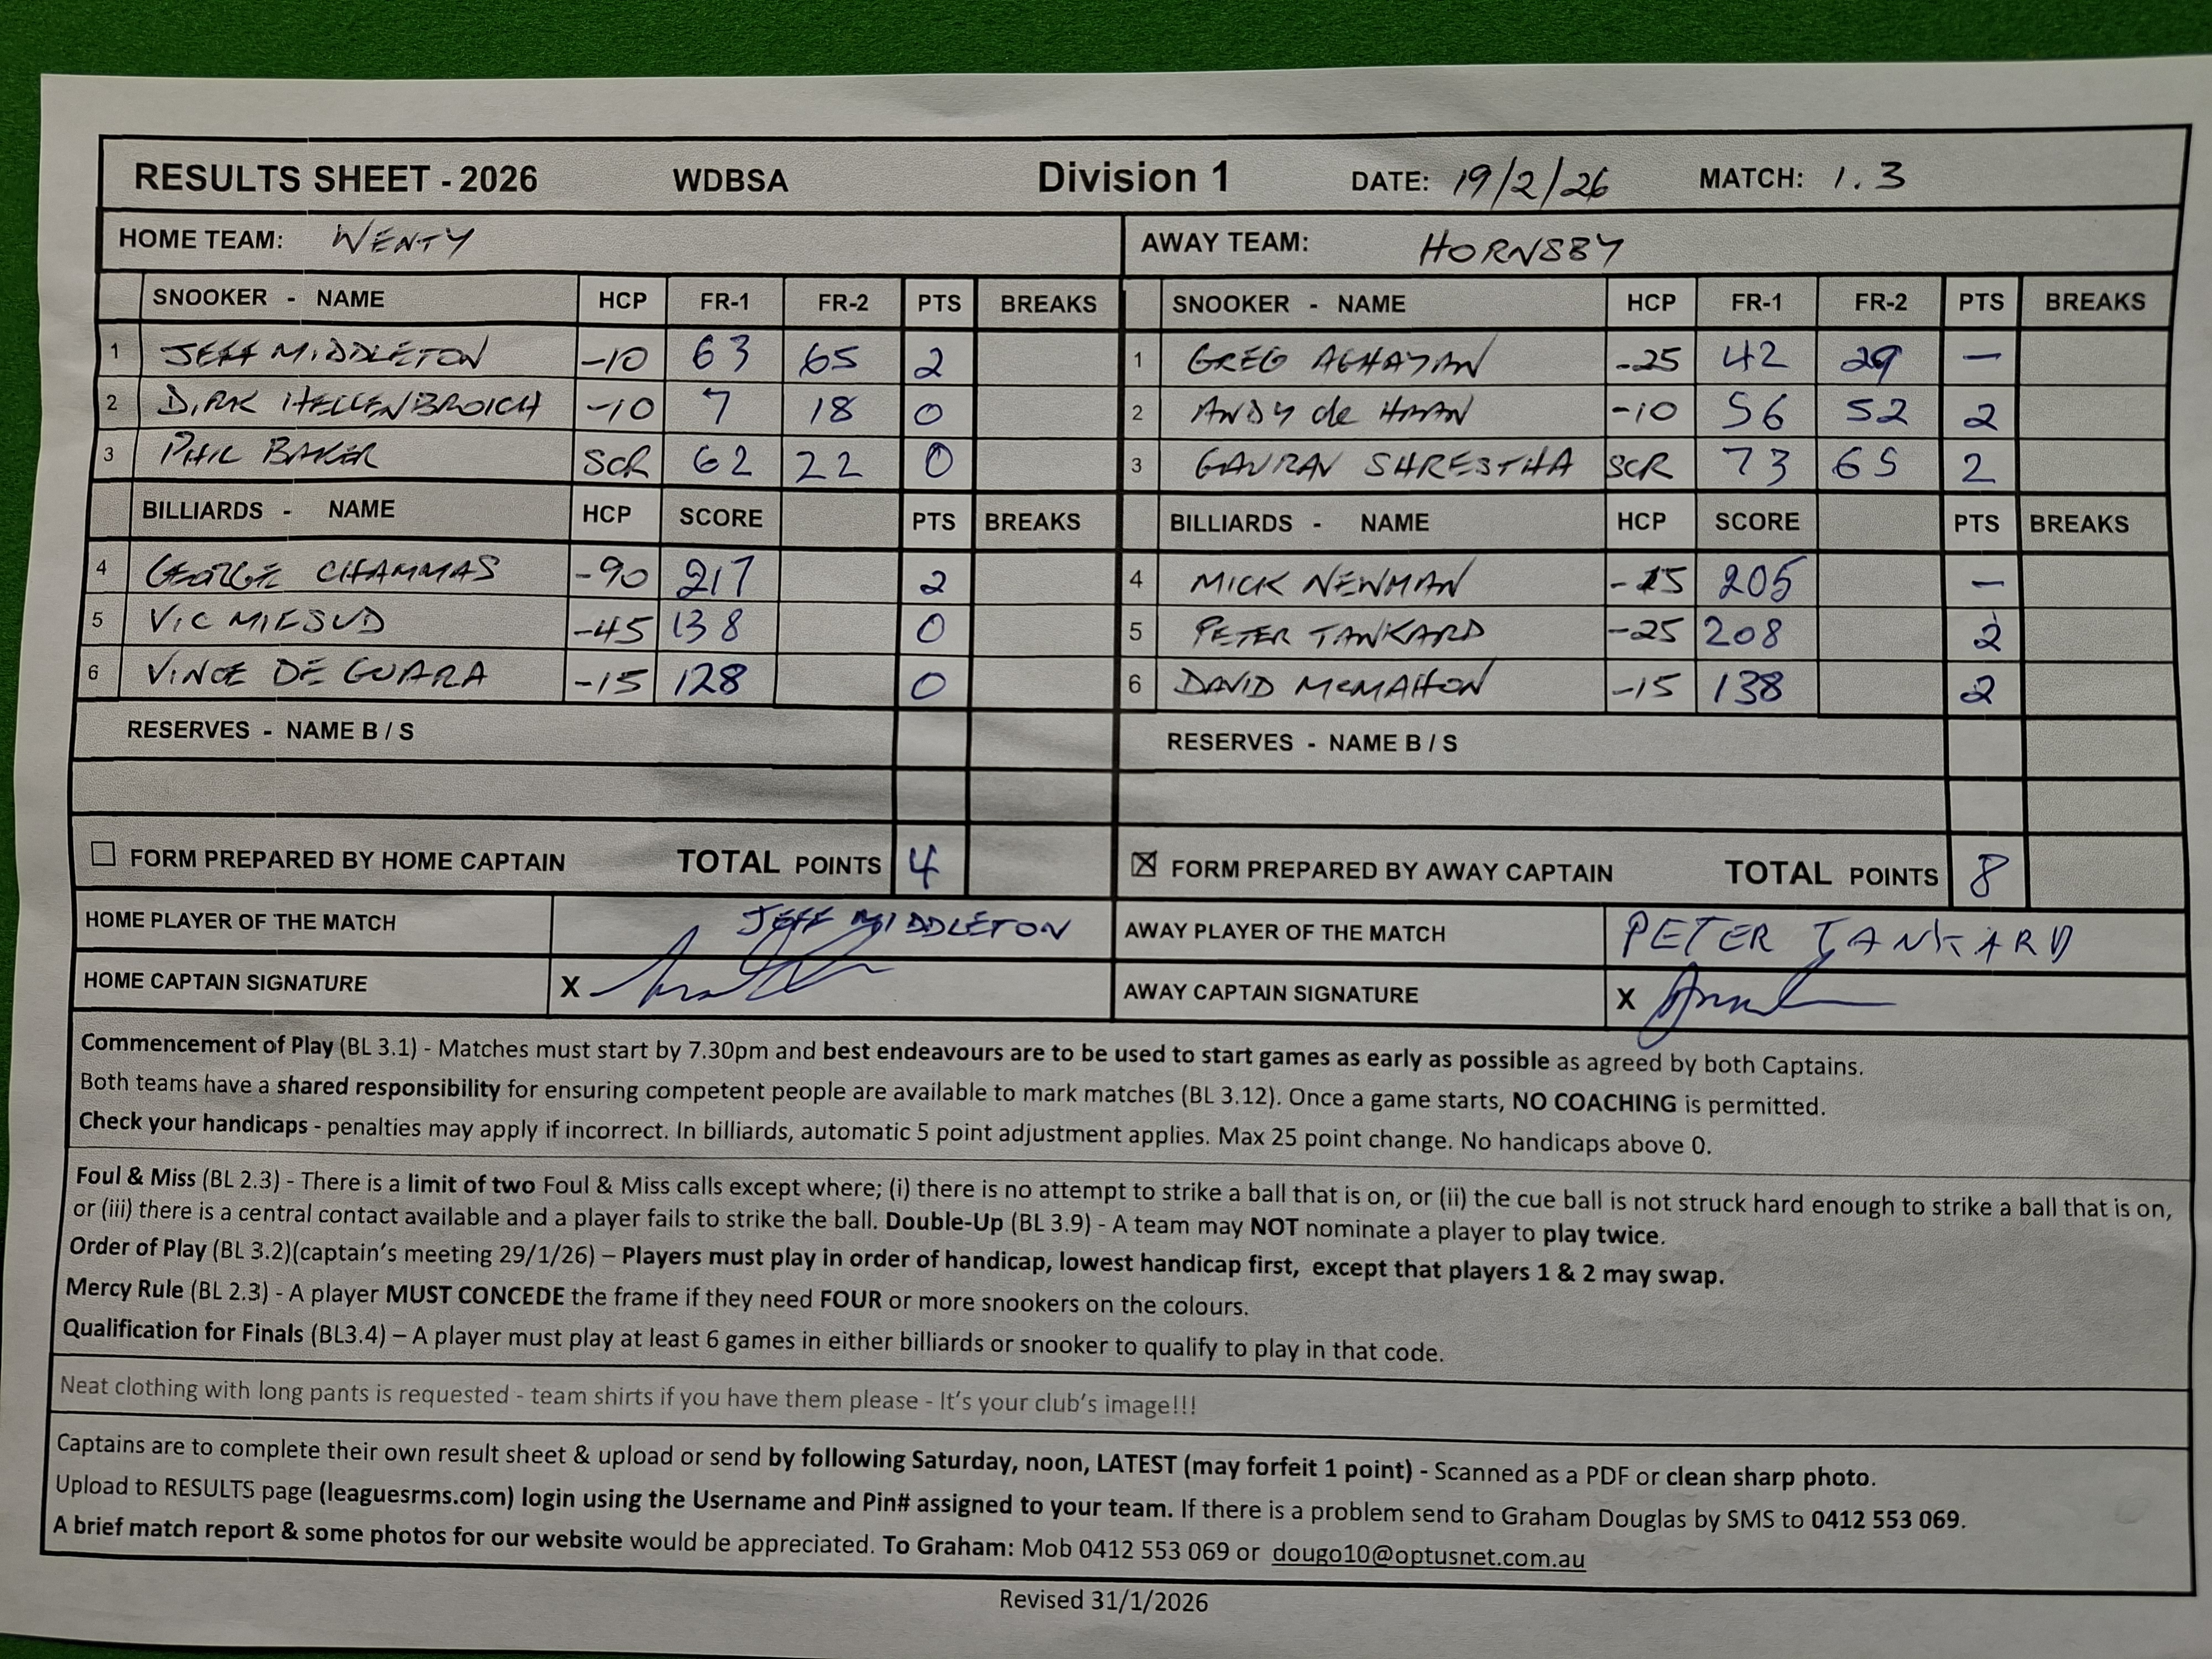 RESULTS SHEET - 2026 WDBSA Division 1 DATE: 19/2/26 MATCH: 1.3
HOME TEAM: WENTY AWAY TEAM: HORNSBY
SNOOKER - NAME HCP FR-1 FR-2 PTS BREAKS SNOOKER - NAME HCP FR-1 FR-2 PTS BREAKS
1 JEFF MIDDLETON -10 63 65 2 1 GREG AGHAYAN -25 42 29 —
2 DIRK HELLENBROICH -10 7 18 0 2 ANDY de HAAN -10 56 52 2
3 PHIL BAKER SCR 62 22 0 3 GAURAV SHRESTHA SCR 73 65 2
BILLIARDS - NAME HCP SCORE PTS BREAKS BILLIARDS - NAME HCP SCORE PTS BREAKS
4 GEORGE CHAMMAS -90 217 2 4 MICK NEWMAN 205 —
5 VIC MIFSUD -45 138 0 5 PETER TANKARD -25 208 2
6 VINCE DE GUARA -15 128 0 6 DAVID McMAHON -15 138 2
RESERVES - NAME B / S RESERVES - NAME B / S
FORM PREPARED BY HOME CAPTAIN TOTAL POINTS 4 ☒ FORM PREPARED BY AWAY CAPTAIN TOTAL POINTS 8
HOME PLAYER OF THE MATCH JEFF MIDDLETON AWAY PLAYER OF THE MATCH PETER TANKARD
HOME CAPTAIN SIGNATURE X AWAY CAPTAIN SIGNATURE X
Commencement of Play (BL 3.1) - Matches must start by 7.30pm and best endeavours are to be used to start games as early as possible as agreed by both Captains.
Both teams have a shared responsibility for ensuring competent people are available to mark matches (BL 3.12). Once a game starts, NO COACHING is permitted.
Check your handicaps - penalties may apply if incorrect. In billiards, automatic 5 point adjustment applies. Max 25 point change. No handicaps above 0.
Foul & Miss (BL 2.3) - There is a limit of two Foul & Miss calls except where; (i) there is no attempt to strike a ball that is on, or (ii) the cue ball is not struck hard enough to strike a ball that is on,
or (iii) there is a central contact available and a player fails to strike the ball. Double-Up (BL 3.9) - A team may NOT nominate a player to play twice.
Order of Play (BL 3.2)(captain's meeting 29/1/26) – Players must play in order of handicap, lowest handicap first, except that players 1 & 2 may swap.
Mercy Rule (BL 2.3) - A player MUST CONCEDE the frame if they need FOUR or more snookers on the colours.
Qualification for Finals (BL3.4) – A player must play at least 6 games in either billiards or snooker to qualify to play in that code.
Neat clothing with long pants is requested - team shirts if you have them please - It's your club's image!!!
Captains are to complete their own result sheet & upload or send by following Saturday, noon, LATEST (may forfeit 1 point) - Scanned as a PDF or clean sharp photo.
Upload to RESULTS page (leaguesrms.com) login using the Username and Pin# assigned to your team. If there is a problem send to Graham Douglas by SMS to 0412 553 069.
A brief match report & some photos for our website would be appreciated. To Graham: Mob 0412 553 069 or dougo10@optusnet.com.au
Revised 31/1/2026